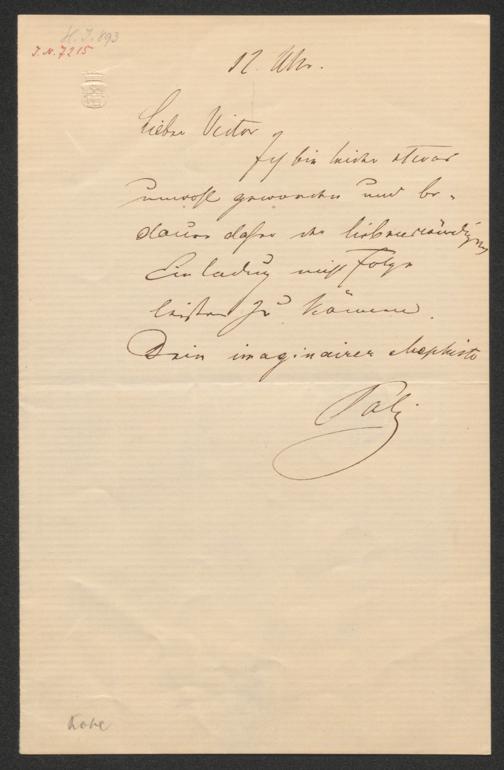 H.I. 893
I.N. 7215
12. Uhr.
Lieber Victor
Ich bin leider etwas
unwohl geworden und be-
daure daher der liebenswürdigen
Einladung nicht Folge
leisten zu können.
Dein imaginairer Mephisto